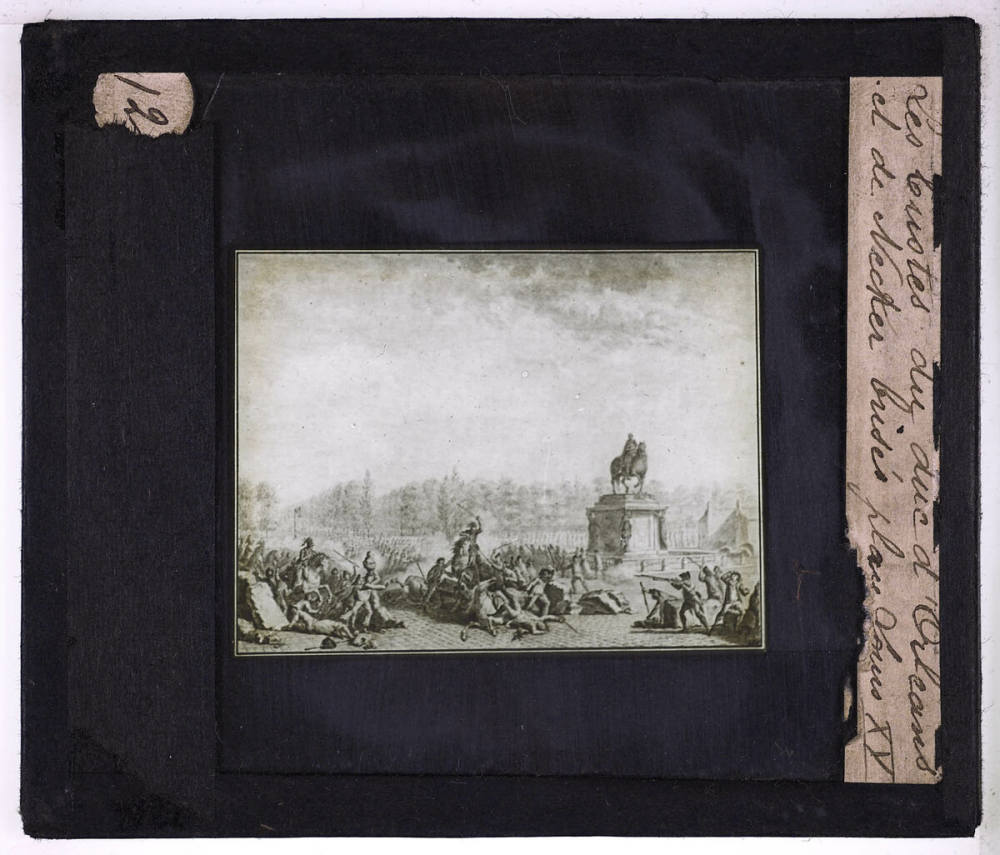 12
Les bustes du duc d'Orléans
et de Necker brisés place Louis XV